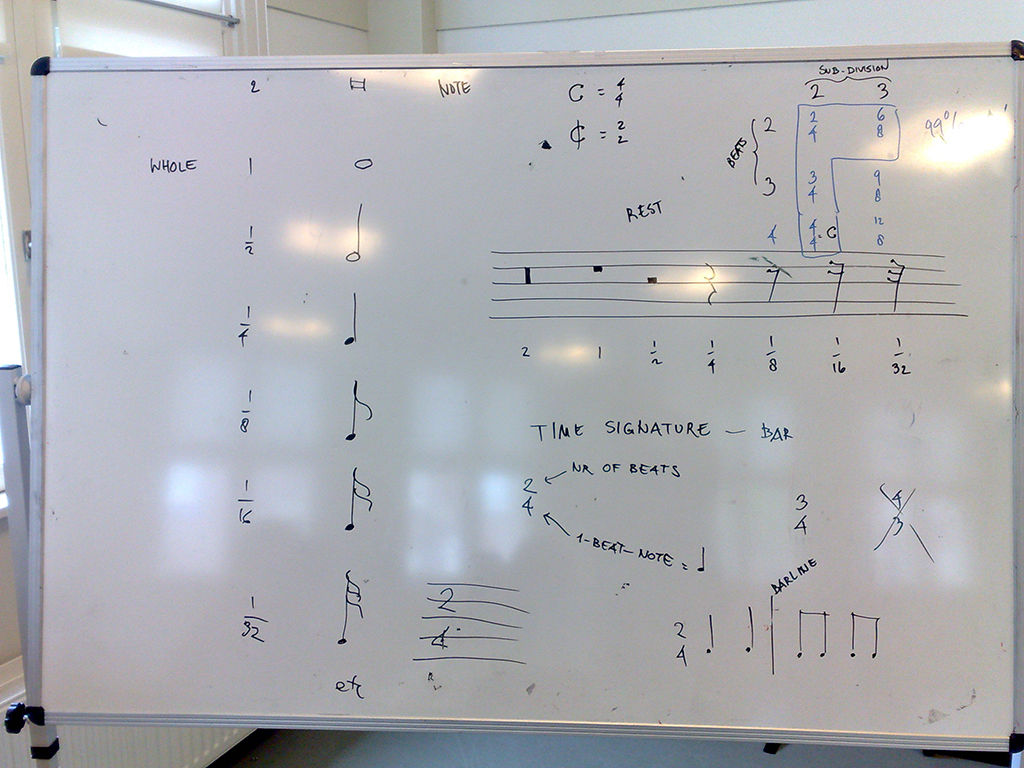 2 NOTE
WHOLE 1
1/2
1/4
1/8
1/16
1/32
etc
2
4
C = 4/4
¢ = 2/2
SUB-DIVISION
2 3
BEATS
2 2/4 6/8
3 3/4 9/8
4 4/4 = C 12/8
99%
REST
2 1 1/2 1/4 1/8 1/16 1/32
TIME SIGNATURE — BAR
2/4
NR OF BEATS
1-BEAT-NOTE =
3/4 4/3
BARLINE
2/4